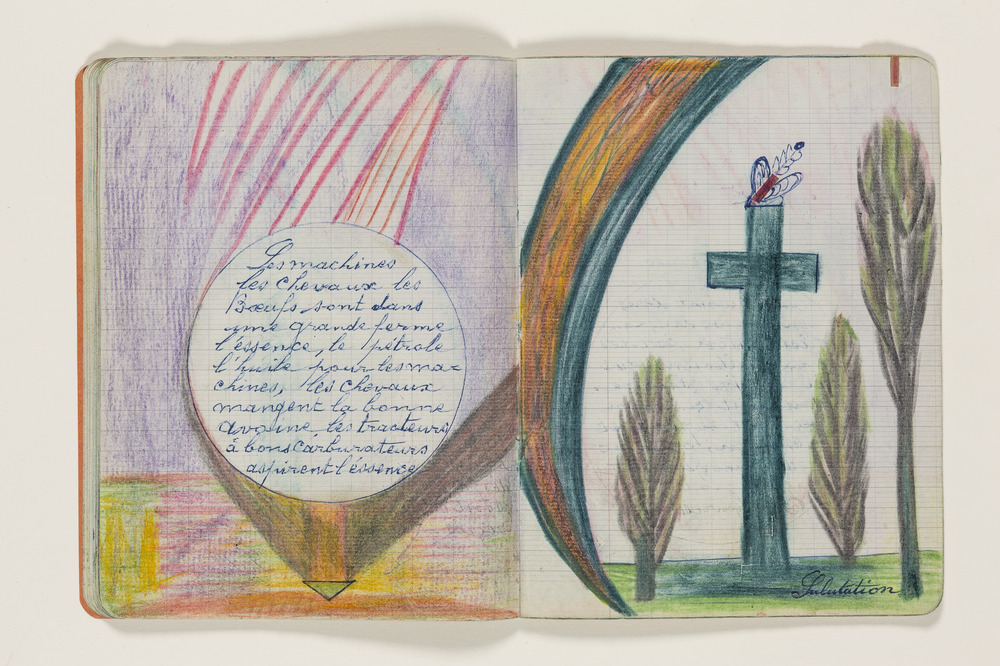 Les machines
les chevaux les
Bœufs sont dans
une grande ferme
l'éssence, le pétrole
l'huile pour les ma-
chines, les chevaux
mangent la bonne
avoine les tracteurs
à bons Carburateurs
aspirent l'éssence
Salutation